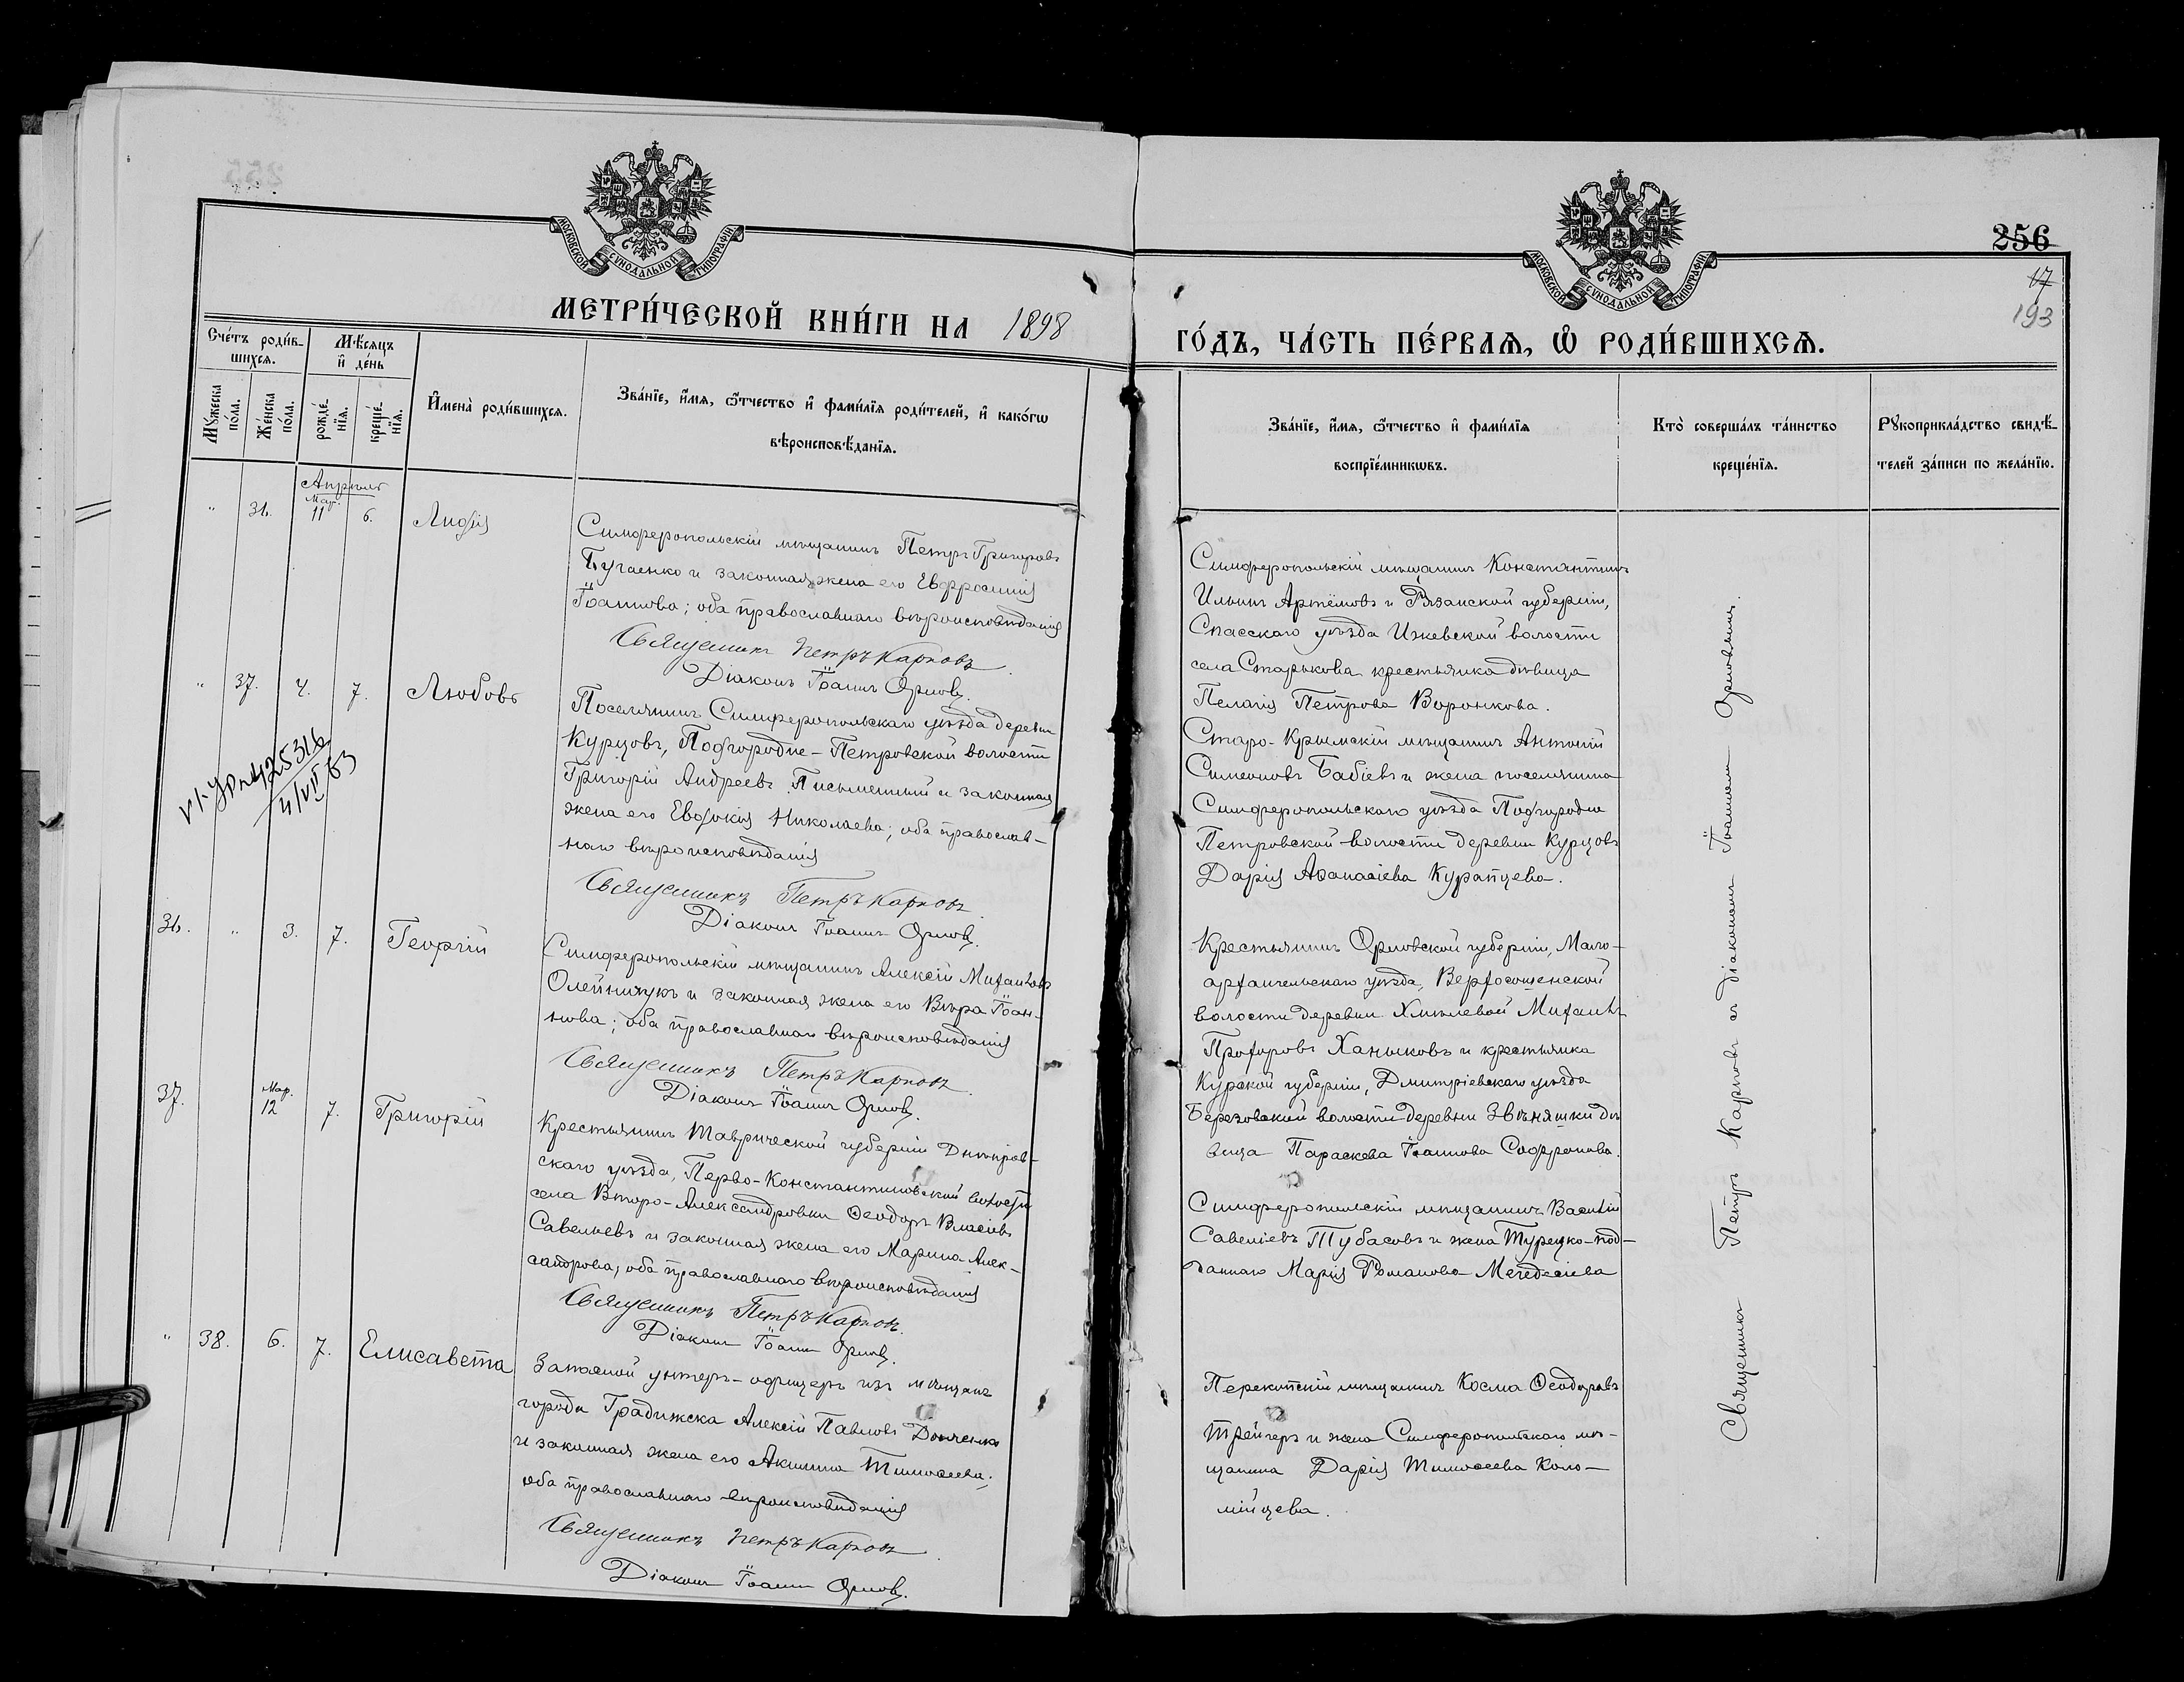 256
17
193
МОСКОВСКОЙ СѴНОДАЛЬНОЙ ТИПОГРАФІИ
МОСКОВСКОЙ СѴНОДАЛЬНОЙ ТИПОГРАФІИ
МЕТРИ́ЧЕСКОЙ КНИ́ГИ НА 1898
ГО́ДЪ, ЧА́СТЬ ПЕ́РВАѦ, Ѽ РОДИ́ВШИХСѦ.
Сче́тъ роди́в-
шихсѧ.
Мꙋ́жеска по́ла.
Же́нска по́ла.
Мѣ́сѧцъ
и҆ де́нь
рожде́-
нїѧ.
креще́-
нїѧ.
И҆мена̀ роди́вшихсѧ.
Зва́нїе, и҆́мѧ, ѻ҆́тчество и҆ фами́лїѧ роди́телей, и҆ како́гѡ
вѣроисповѣ́данїѧ.
Зва́нїе, и҆́мѧ, ѻ҆́тчество и҆ фами́лїѧ
воспрїе́мникѡвъ.
Кто̀ соверша́лъ та́инство
креще́нїѧ.
Рꙋкоприкла́дство свидѣ́-
телей за́писи по жела́нїю.
Апрѣль
" 36. Мар. 11 6. Лидія
Симферопольскій мѣщанинъ Петръ Григоровъ
Бугаенко и законная жена его Евфросинія
Іоаннова; оба православнаго вѣроисповѣданія
Священникъ Петръ Карповъ.
Діаконъ Іоаннъ Орловъ.
Симферопольскій мѣщанинъ Константинъ
Ильинъ Артёмовъ и Рязанской губерніи,
Спасскаго уѣзда Ижевской волости
села Старькова крестьянка дѣвица
Пелагія Петрова Воронкова.
" 37. 4. 7. Любовь
Поселянинъ Симферопольскаго уѣзда деревни
Курцовъ, Подгородне-Петровской волости
Григорій Андреевъ Письменный и законная
жена его Евдокія Николаева; оба православ-
наго вѣроисповѣданія
Священникъ Петръ Карповъ.
Діаконъ Іоаннъ Орловъ.
Старо-Крымскій мѣщанинъ Антоній
Симеоновъ Бабіевъ и жена поселянина
Симферопольскаго уѣзда Подгородно
Петровской волости деревни Курцовъ
Дарія Аѳанасіева Курапцева.
425316
4/VII 63
36. " 3. 7. Георгій
Симферопольскій мѣщанинъ Алексій Михаиловъ
Олейничукъ и законная жена его Вѣра Іоан-
нова; оба православнаго вѣроисповѣданія
Священникъ Петръ Карповъ
Діаконъ Іоаннъ Орловъ.
Крестьянинъ Орловской губерніи, Мало-
архангельскаго уѣзда, Верхососенской
волости деревни Хмѣлевой Михаилъ
Прохоровъ Ханыковъ и крестьянка
Курской губерніи, Дмитріевскаго уѣзда
Березовской волости деревни Звѣняшки дѣ
вица Параскева Іоаннова Софронова.
37. Мар. 12 7. Григорій
Крестьянинъ Таврической губерніи Днѣпров-
скаго уѣзда, Перво-Константиновской волости
села Второ-Александровки Ѳеодоръ Власіевъ
Савельевъ и законная жена его Марина Алек-
сандрова; оба православнаго вѣроисповѣданія
Священникъ Петръ Карповъ.
Діаконъ Іоаннъ Орловъ.
Симферопольскій мѣщанинъ Василій
Савеліевъ Тубасовъ и жена Турецко-под-
даннаго Марія Романова
" 38. 6. 7. Елисавета
Запасной унтеръ-офицеръ изъ мѣщанъ
города Градижска Алексій Павловъ
и законная жена его Акилина Тимоѳеева;
оба православнаго вѣроисповѣданія
Священникъ Петръ Карповъ.
Діаконъ Іоаннъ Орловъ.
Перекопскій мѣщанинъ Косма Ѳеодоровъ
Трейгеръ и жена Симферопольскаго мѣ-
щанина Дарія Тимоѳеева Коло-
мійцева.
Священникъ Петръ Карповъ съ діакономъ Іоанномъ Орловымъ.